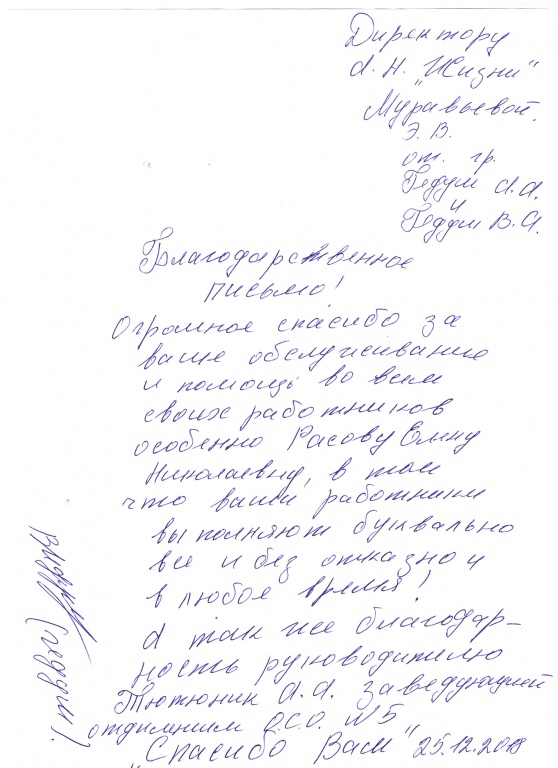 Директору
А. Н. "Жизни"
Муравьевой.
Э. В.
от гр.
Геддум А.А.
и
Геддум В.А.
Благодарственное
письмо!
Огромное спасибо за
ваше обслуживание
и помощь во всем
своих работников
особенно Расову Елену
Николаевну, в том
что ваши работники
выполняют буквально
все и без отказно и
в любое время!
А так же благодар-
ность руководителю
Тютюник А.А. заведующей
отдилнием О.С.О. №5
"Спасибо Вам" 25.12.2018